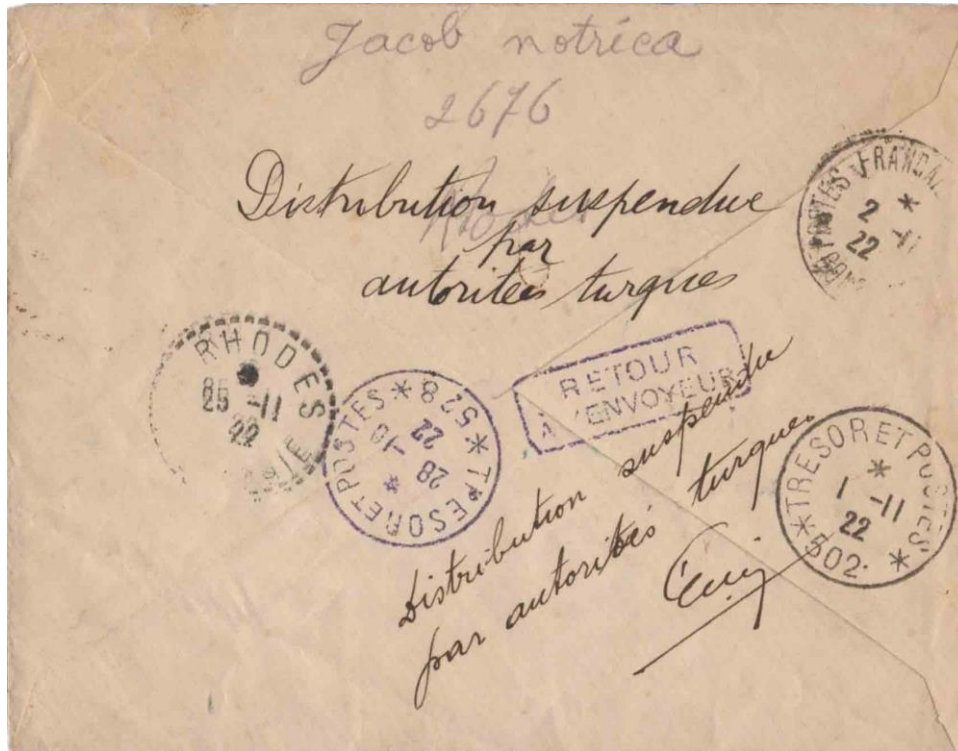 Jacob notrica
2676
Distribution suspendue
par
autoritées turques
POSTES FRANCAI
*
2 -11
22
RHODES
25 -11
22
*TRESOR ET POSTES* 528
28 -10
22
*
RETOUR
A L'ENVOYEUR
Distribution suspendue
par autorités turques
*TRESOR ET POSTES*
*
1 -11
22
502